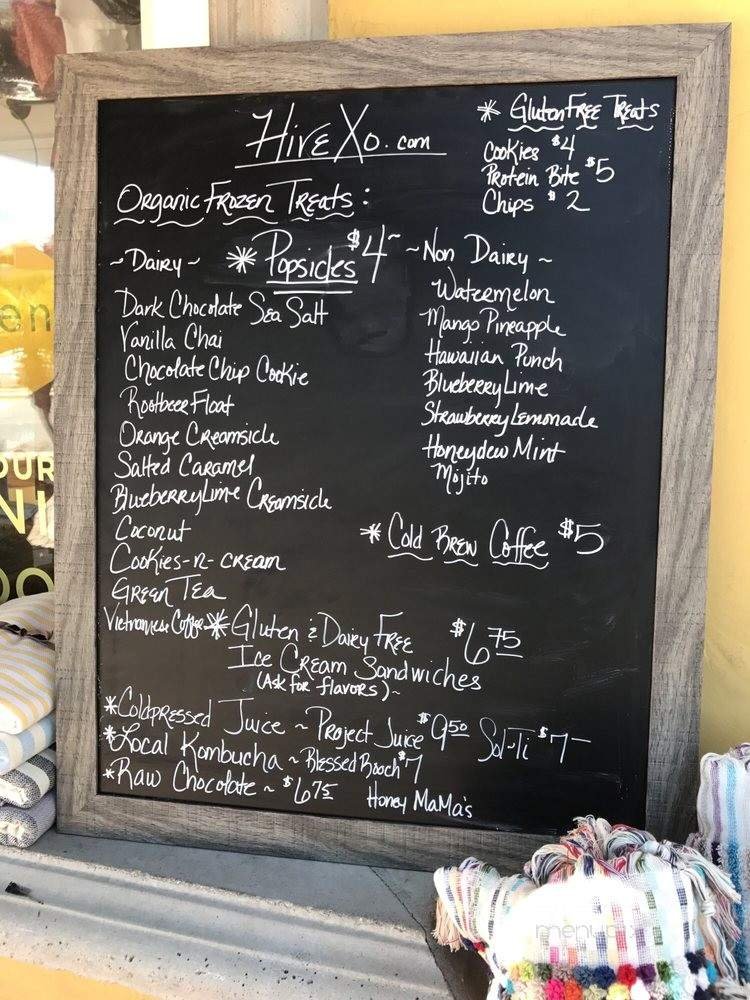 HiveXo.com
* Gluten Free Treats
Cookies $4
Protein Bite $5
Chips $2
Organic Frozen Treats:
* Popsicles $4~
~Dairy~
Dark Chocolate Sea Salt
Vanilla Chai
Chocolate Chip Cookie
Rootbeer Float
Orange Creamsicle
Salted Caramel
Blueberry Lime Creamsicle
Coconut
Cookies-n-cream
Green Tea
Vietnamese Coffee
~Non Dairy~
Watermelon
Mango Pineapple
Hawaiian Punch
Blueberry Lime
Strawberry Lemonade
Honeydew Mint
Mojito
* Cold Brew Coffee $5
* Gluten & Dairy Free $6.75
Ice Cream Sandwiches
(Ask for flavors)~
*Coldpressed Juice ~ Project Juice $9.50 Sol-Ti $7-
*Local Kombucha ~ Blessed Booch $7
*Raw Chocolate ~ $6.75 Honey MaMa's
en
OUR
NI
OO